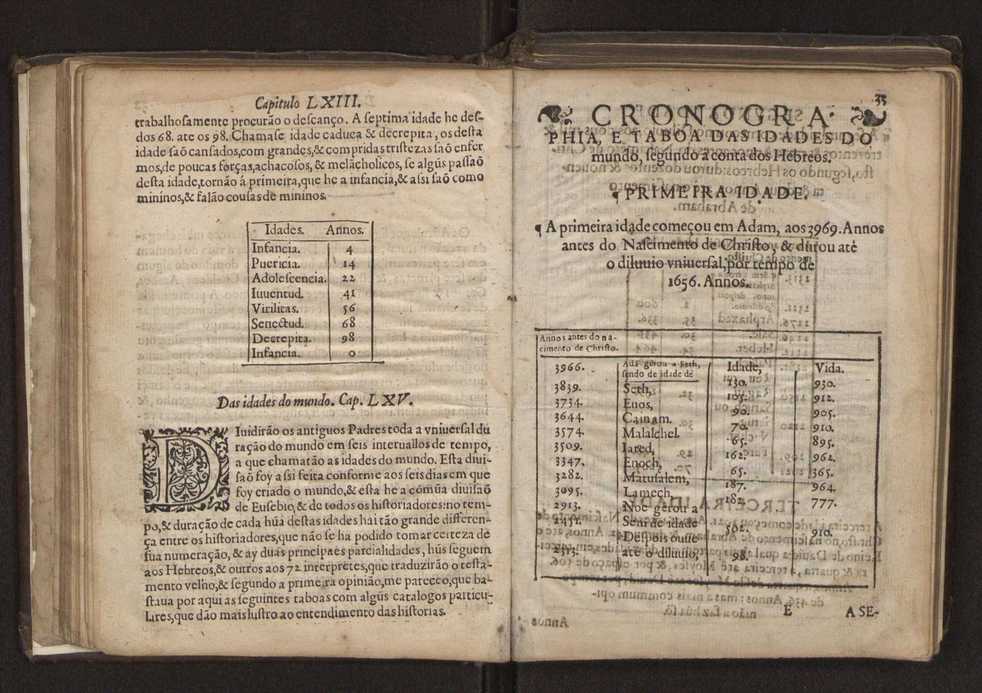 Capitulo LXIII.
trabalhosamente procurão o descanço. A septima idade he des-
dos 68. ate os 98. Chamase idade caduca & decrepita, os desta
idade saõ cansados,com grandes,& compridas tristezas saõ enfer
mos,de poucas forças,achacosos, & melãcholicos, se algũs passaõ
desta idade,tornão á primeira,que he a infancia,& assi saõ como
mininos,& falão cousas de mininos.
Idades. Annos.
Infancia. 4
Puericia. 14
Adolescencia. 22
Iuuentud. 41
Virilitas. 56
Senectud. 68
Decrepita. 98
Infancia. 0
Das idades do mundo. Cap. LXV.
DIuidirão os antiguos Padres toda a vniuersal du
ração do mundo em seis interuallos de tempo,
a que chamarão as idades do mundo. Esta diui-
saõ foy assi feita conforme aos seis dias em que
foy criado o mundo,& esta he a cómũa diuisaõ
de Eusebio,& de todos os historiadores:no tem-
po,& duração de cada hũa destas idades hai tão grande differen-
ça entre os historiadores,que não se ha podido tomar certeza de
sua numeração, & ay duas principaes parcialidades, hũs seguem
aos Hebreos,& outros aos 72. interpretes,que traduzirão o testa-
mento velho,& segundo a primeira opinião,me pareceo,que ba-
staua por aqui as seguintes taboas com algũs catalogos particu-
lares,que dão mais lustro ao entendimento das historias.
33
CRONOGRA-
PHIA, E TABOA DAS IDADES DO
mundo, segundo a conta dos Hebreos.
PRIMEIRA IDADE.
A primeira idade começou em Adam, aos 3969. Annos
antes do Nascimento de Christo, & durou até
o diluuio vniuersal,por tempo de
1656. Annos.
Annos antes do na-
cimento de Christo.
3966. Adã gerou a Seth, sendo de idade de Idade, 130. Vida. 930.
3839. Seth, 105. 912.
3734. Enos, 90. 905.
3644. Cainam. 70. 910.
3574. Malalehel. 65. 895.
3509. Iared, 162. 962.
3347. Enoch, 65. 365.
3282. Matusalem, 187. 964.
3095. Lamech, 182. 777.
2913. Noe gerou a
2431. Sem de idade 502. 910.
Despois ouue
2313. até o diluuio, 98.
E
A SE-